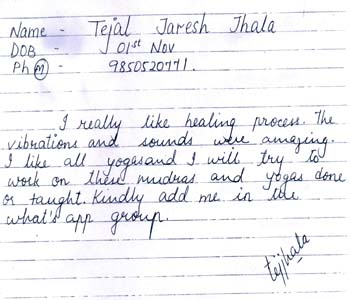 Name - Tejal Jaresh Jhala
DOB - 01st Nov
Ph (m) - 9850520771.
I really like healing process. The
vibrations and sounds were amazing.
I like all yogas and I will try to
work on these mudras and yogas done
or taught. Kindly add me in the
what's app group.
tejjhala